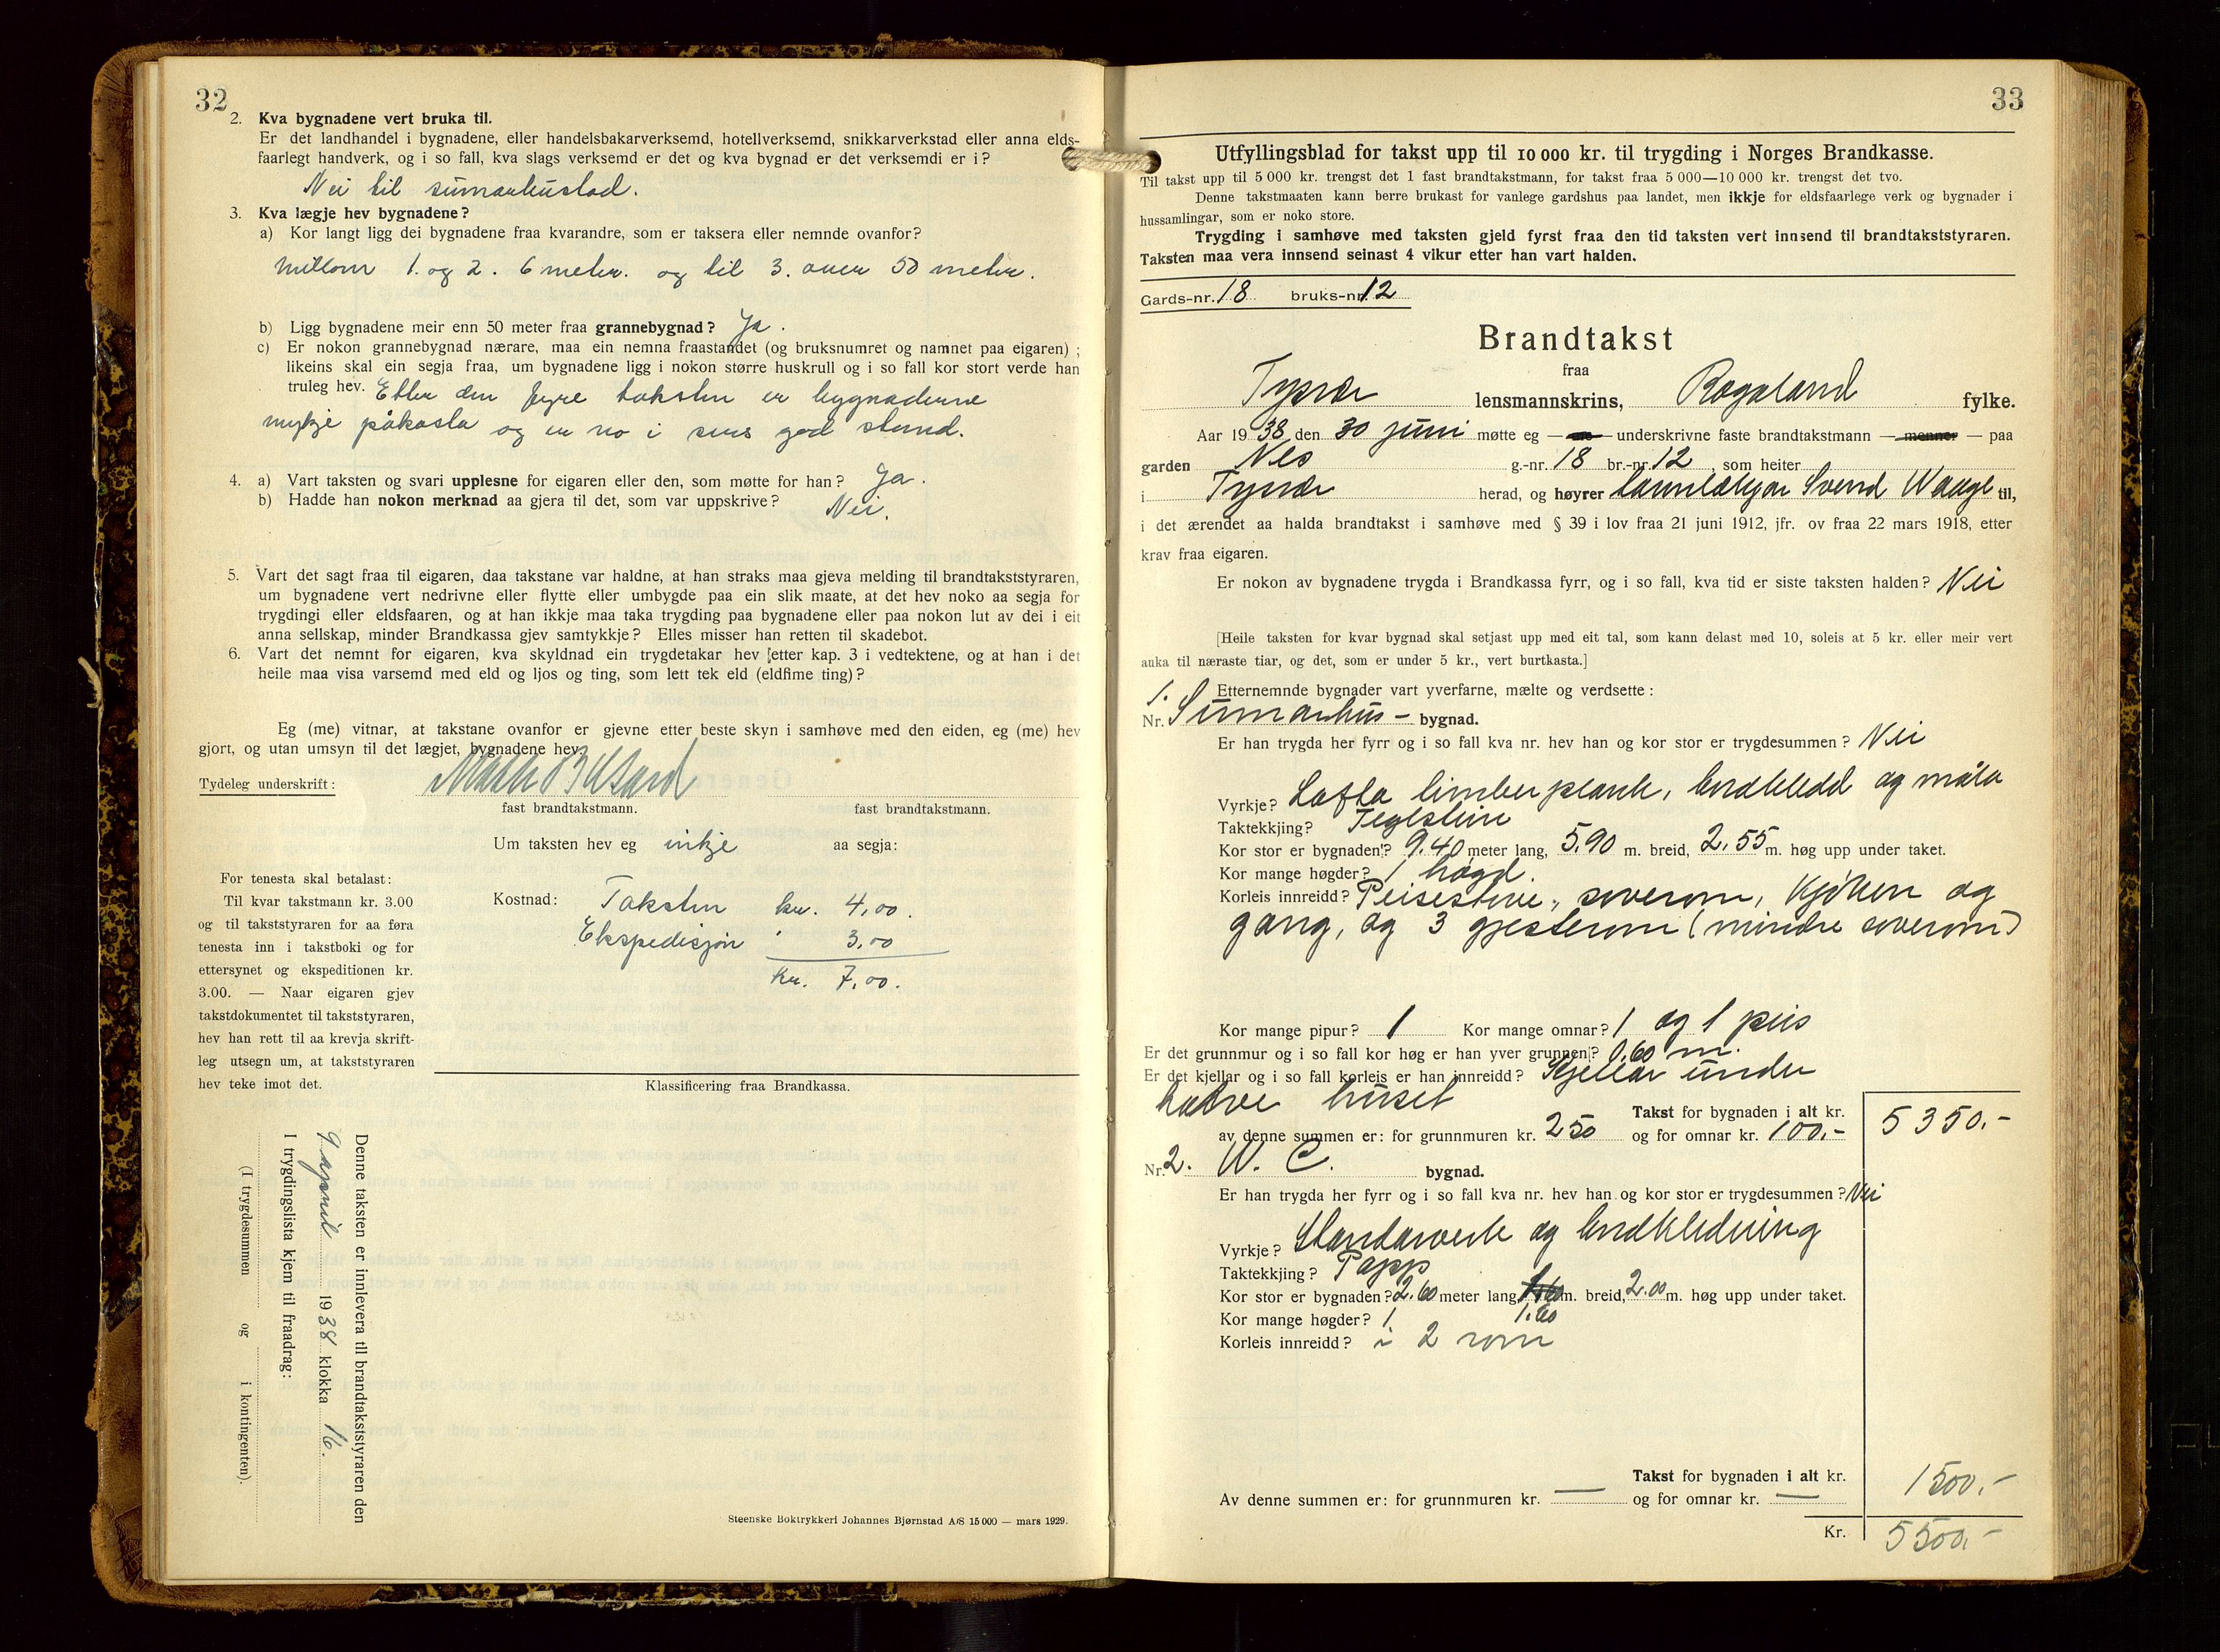 32
2. Kva bygnadene vert bruka til.
Er det landhandel i bygnadene, eller handelsbakarverksemd, hotellverksemd, snikkarverkstad eller anna elds-
faarlegt handverk, og i so fall, kva slags verksemd er det og kva bygnad er det verksemdi er i?
Nei til sumarhustad.
3. Kva lægje hev bygnadene?
a) Kor langt ligg dei bygnadene fraa kvarandre, som er taksera eller nemnde ovanfor?
Millom 1. og 2. 6 meter. og til 3. over 50 meter.
b) Ligg bygnadene meir enn 50 meter fraa grannebygnad? Ja.
c) Er nokon grannebygnad nærare, maa ein nemna fraastandet (og bruksnumret og namnet paa eigaren);
likeins skal ein segja fraa, um bygnadene ligg i nokon større huskrull og i so fall kor stort verde han
truleg hev. Etter den fyrre taksten er bygnadene
mykje påkosta og er no i sers god stand.
4. a) Vart taksten og svari upplesne for eigaren eller den, som møtte for han? Ja.
b) Hadde han nokon merknad aa gjera til det, som var uppskrive? Nei.
5. Vart det sagt fraa til eigaren, daa takstane var haldne, at han straks maa gjeva melding til brandtakststyraren,
um bygnadene vert nedrivne eller flytte eller umbygde paa ein slik maate, at det hev noko aa segja for
trygdingi eller eldsfaaren, og at han ikkje maa taka trygding paa bygnadene eller paa nokon lut av dei i eit
anna sellskap, minder Brandkassa gjev samtykkje? Elles misser han retten til skadebot.
6. Vart det nemnt for eigaren, kva skyldnad ein trygdetakar hev etter kap. 3 i vedtektene, og at han i det
heile maa visa varsemd med eld og ljos og ting, som lett tek eld (eldfime ting)?
Eg (me) vitnar, at takstane ovanfor er gjevne etter beste skyn i samhøve med den eiden, eg (me) hev
gjort, og utan umsyn til det lægjet, bygnadene hev.
Tydeleg underskrift:
fast brandtakstmann. fast brandtakstmann.
Um taksten hev eg inkje aa segja:
For tenesta skal betalast:
Til kvar takstmann kr. 3.00
og til takststyraren for aa føra
tenesta inn i takstboki og for
ettersynet og ekspeditionen kr.
3.00. — Naar eigaren gjev
takstdokumentet til takststyraren,
hev han rett til aa krevja skrift-
leg utsegn um, at takststyraren
hev teke imot det.
Kostnad: Taksten kr. 4,00.
Ekspedisjon " 3,00
Kr. 7,00.
Klassificering fraa Brandkassa.
Denne taksten er innlevera til brandtakststyraren den
9 april 1938 klokka 16.
I trygdingslista kjem til fraadrag:
(I trygdesummen og i kontingenten).
Steenske Boktrykkeri Johannes Bjørnstad A/S 15 000 — mars 1929.
33
Utfyllingsblad for takst upp til 10 000 kr. til trygding i Norges Brandkasse.
Til takst upp til 5 000 kr. trengst det 1 fast brandtakstmann, for takst fraa 5 000—10 000 kr. trengst det tvo.
Denne takstmaaten kann berre brukast for vanlege gardshus paa landet, men ikkje for eldsfaarlege verk og bygnader i
hussamlingar, som er noko store.
Trygding i samhøve med taksten gjeld fyrst fraa den tid taksten vert innsend til brandtakststyraren.
Taksten maa vera innsend seinast 4 vikur etter han vart halden.
Gards-nr. 18 bruks-nr. 12
Brandtakst
fraa
Tysvær lensmannskrins, Rogaland fylke.
Aar 1938 den 30 juni møtte eg — me — underskrivne faste brandtakstmann — menner — paa
garden Nes g.-nr. 18 br.-nr. 12, som heiter
i Tysvær herad, og høyrer tannlækjar Svend Waage til,
i det ærendet aa halda brandtakst i samhøve med § 39 i lov fraa 21 juni 1912, jfr. ov fraa 22 mars 1918, etter
krav fraa eigaren.
Er nokon av bygnadene trygda i Brandkassa fyrr, og i so fall, kva tid er siste taksten halden? Nei
[Heile taksten for kvar bygnad skal setjast upp med eit tal, som kann delast med 10, soleis at 5 kr. eller meir vert
auka til næraste tiar, og det, som er under 5 kr., vert burtkasta.]
Etternemnde bygnader vart yverfarne, mælte og verdsette:
Nr. 1. Sumarhus- bygnad.
Er han trygda her fyrr og i so fall kva nr. hev han og kor stor er trygdesummen? Nei
Vyrkje? Lafta timber plank, bordkledd og måla
Taktekkjing? Teglstein
Kor stor er bygnaden? 9.40 meter lang, 5,90 m. breid, 2,55 m. høg upp under taket.
Kor mange høgder? 1 høgd.
Korleis innreidd? Peisestove, soverom, kjøken og
gang, og 3 gjesterom (mindre soverom)
Kor mange pipur? 1 Kor mange omnar? 1 og 1 peis
Er det grunnmur og i so fall kor høg er han yver grunnen? 0,60 m.
Er det kjellar og i so fall korleis er han innreidd? Kjellar under
halve huset
Takst for bygnaden i alt kr. 5350.-
av denne summen er: for grunnmuren kr. 250 og for omnar kr. 100.-
Nr. 2. W. C. bygnad.
Er han trygda her fyrr og i so fall kva nr. hev han og kor stor er trygdesummen? Nei
Vyrkje? Standarverk og bordkledning
Taktekkjing? Papp
Kor stor er bygnaden? 2.60 meter lang, 1.60 m. breid, 2.00 m. høg upp under taket.
Kor mange høgder? 1 1.60
Korleis innreidd? i 2 rom
Takst for bygnaden i alt kr. 1500.-
Av denne summen er: for grunnmuren kr. — og for omnar kr. —
Kr. 5500.-